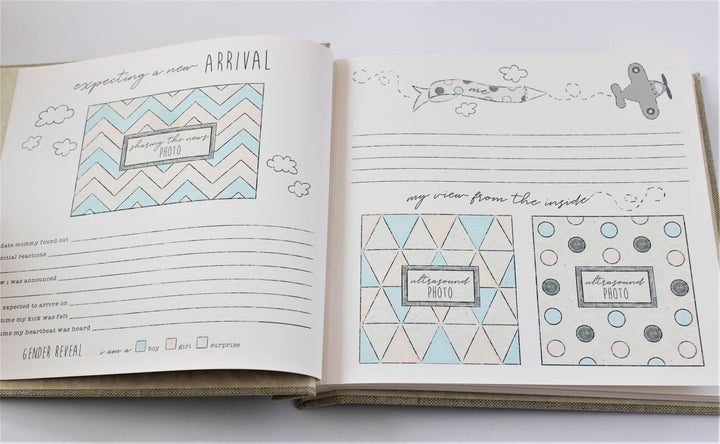 expecting a new ARRIVAL
sharing the news
PHOTO
date mommy found out
initial reactions
w i was announced
expected to arrive on
time my kick was felt
me my heartbeat was heard
GENDER REVEAL . . . i am a boy girl surprise
me
my view from the inside
ultrasound
PHOTO
ultrasound
PHOTO